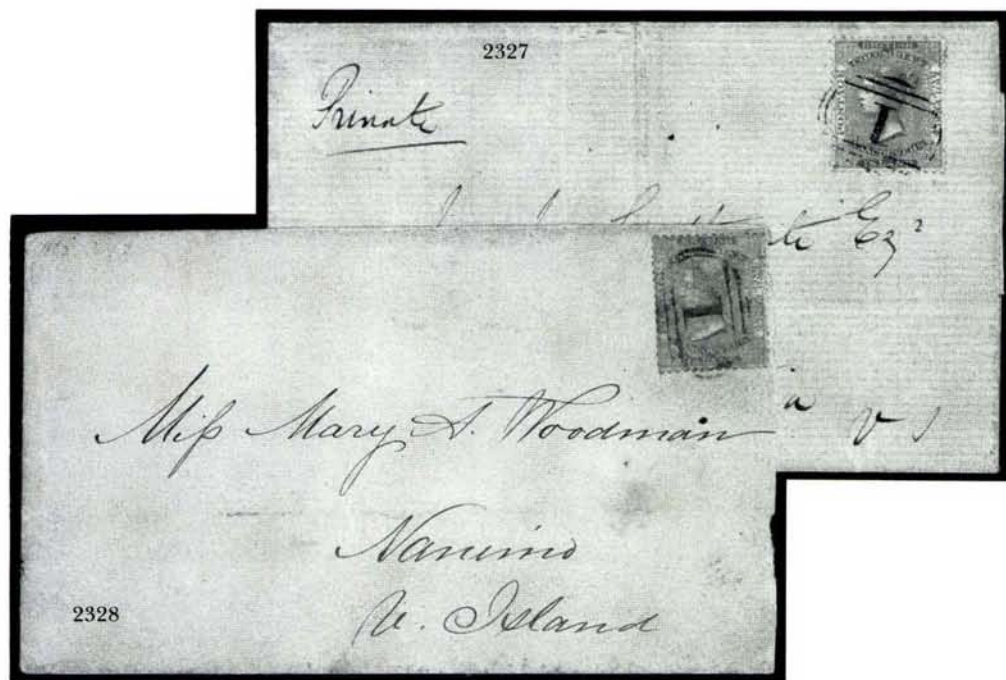 2327
Private
Esqr
a V I
Miss Mary A. Woodman
Nanimo
V. Island
2328